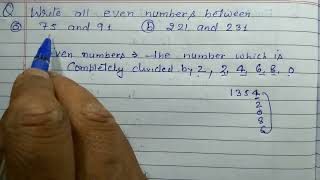 Q Write all even numbers between
ⓐ 75 and 91 ⓑ 221 and 231
even numbers ⇒ the number which is
Completely divided by 2, 2, 4, 6, 8, 0
1354
2
0
8
6